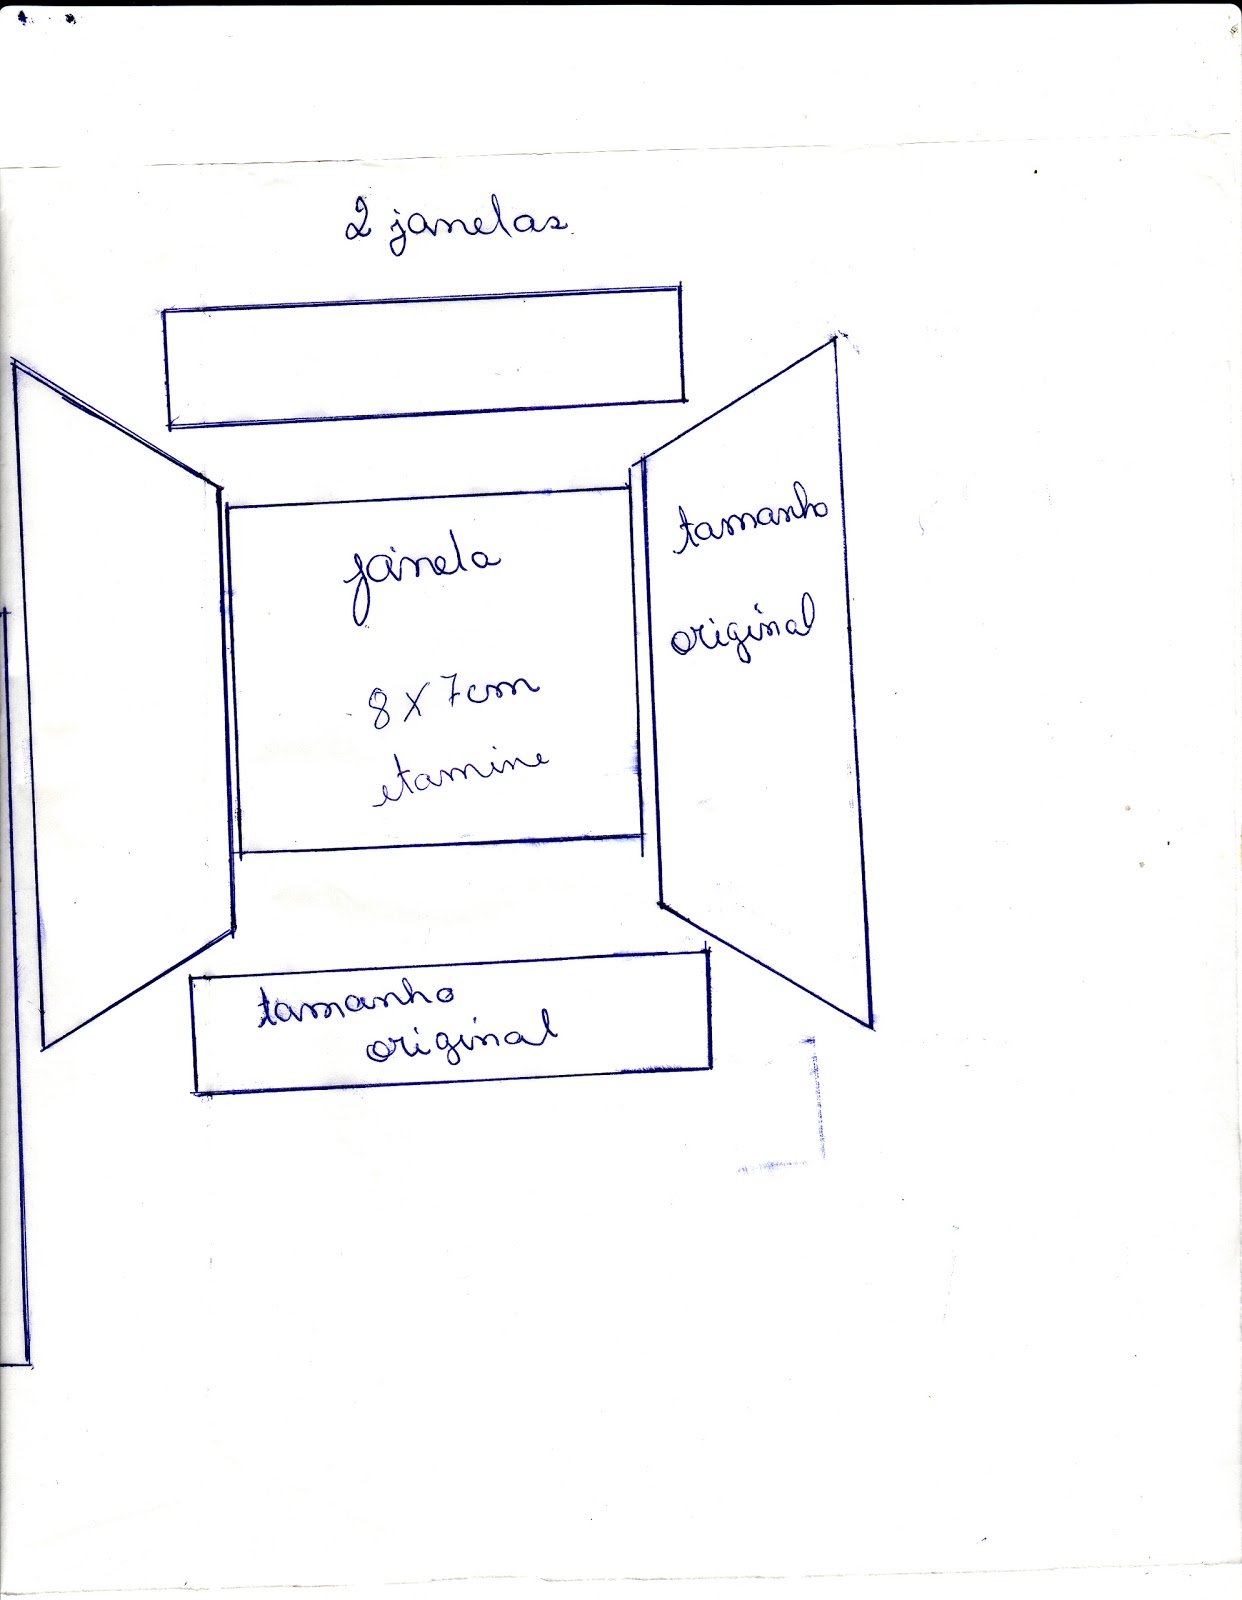 2 janelas
janela
8 x 7cm
etamine
tamanho
original
tamanho
original